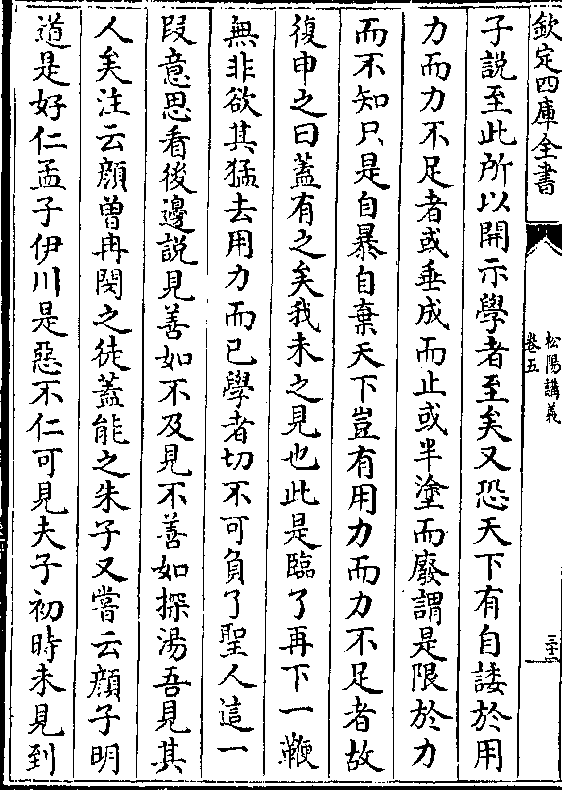 欽定四庫全書
松陽講義
卷五
三十二
子説至此所以開示學者至矣又恐天下有自諉於用
力而力不足者或垂成而止或半塗而廢謂是限於力
而不知只是自暴自棄天下豈有用力而力不足者故
復申之曰蓋有之矣我未之見也此是臨了再下一鞭
無非欲其猛去用力而已學者切不可負了聖人這一
段意思看後邊說見善如不及見不善如探湯吾見其
人矣注云顔曽冉閔之徒蓋能之朱子又嘗云顔子明
道是好仁孟子伊川是惡不仁可見夫子初時未見到